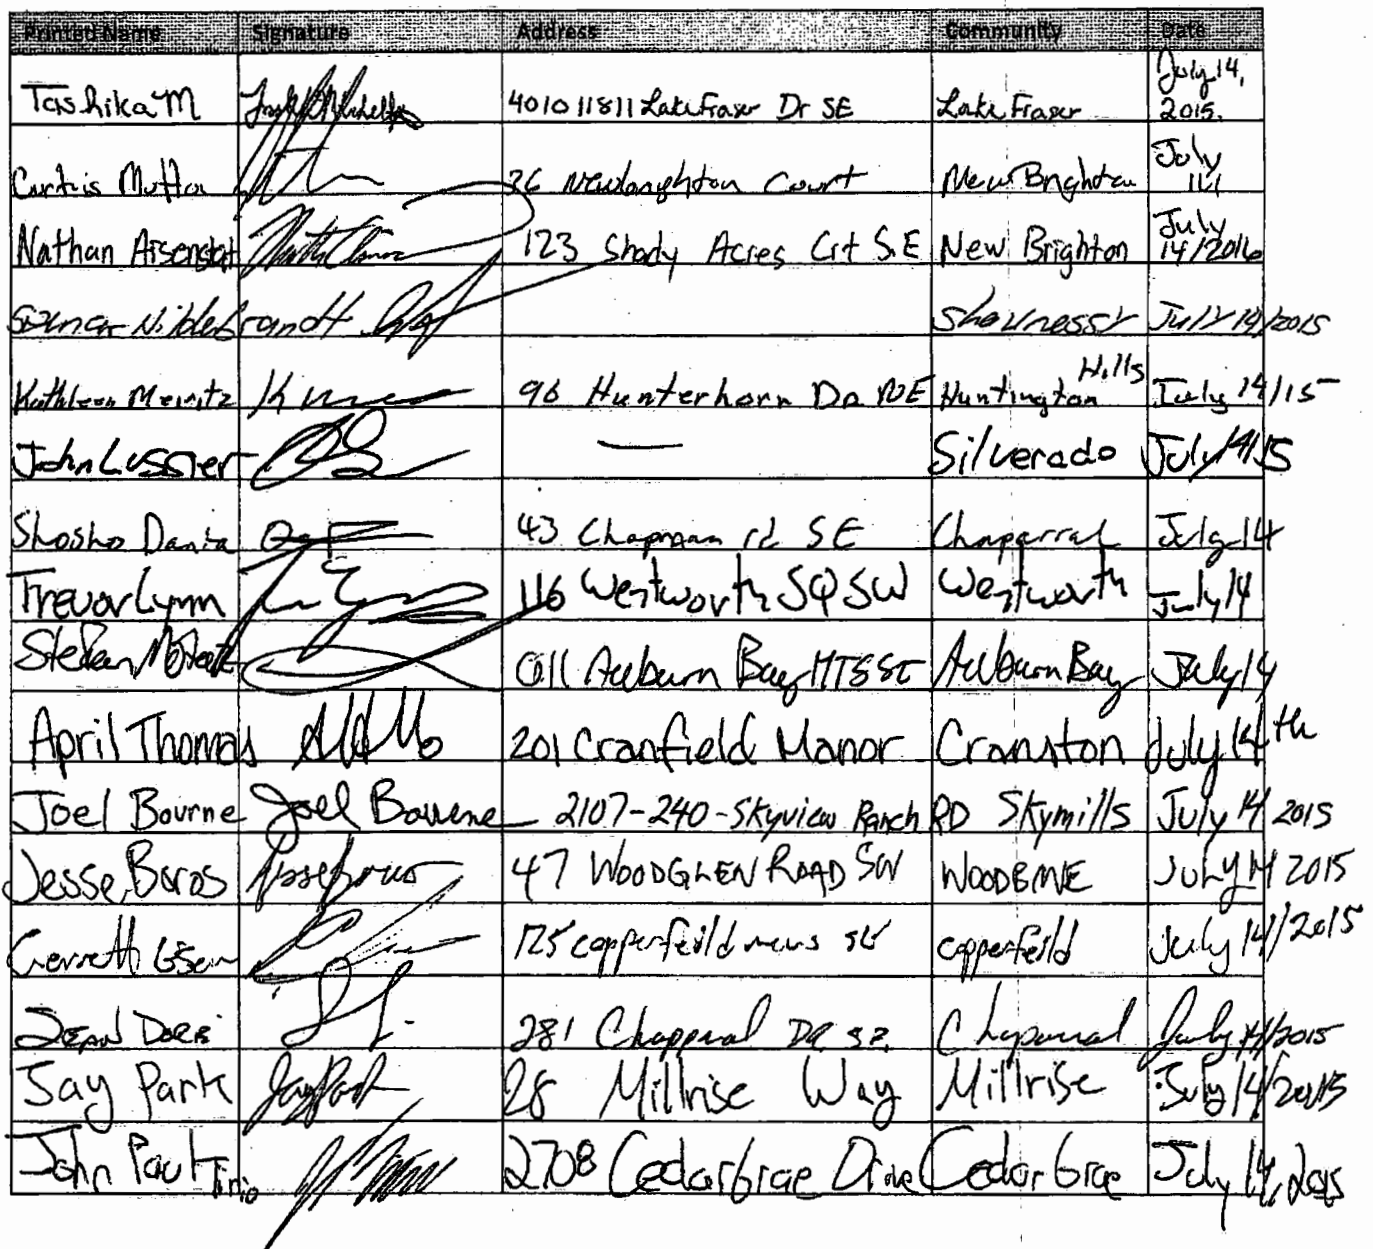 Printed Name Signature Address Community Date
Tashika M 4010 11811 Lake Fraser Dr SE Lake Fraser July 14, 2015.
Curtis 26 Newbrighton Court New Brighton July 14
Nathan Aisenstat 123 Shady Acres Crt S.E New Brighton July 14/2016
Shawnessy July 14/2015
Kathleen 96 Hunterhorn Dr NE Huntington Hills July 14/15
John Lussier — Silverado July 14/15
43 Chapman rd SE Chaparral July 14
Trevor Lynn 116 Wentworth SQ SW Wentworth July 14
Stefan Auburn Bay HTS SE Auburn Bay July 14
April Thomas 201 Cranfield Manor Cranston July 14th
Joel Bourne Joel Bourne 2107-240-Skyview Ranch RD Skymills July 14 2015
Jesse Boros 47 WOODGLEN ROAD SW WOODBINE JULY 14 2015
125 copperfeild mews SE copperfeild July 14/2015
281 Chapparal DR SE. Chaparral July 14/2015
Jay Park Jay Park 28 Millrise Way Millrise July 14/2015
John Paul Tirio 2708 Cedarbrae Drive Cedarbrae July 14, 2015